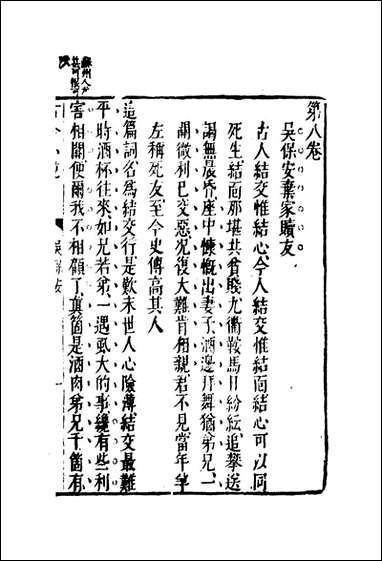 第八卷
吳保安棄家贖友
古人結交惟結心今人結交惟結面結心可以同
死生結面那堪共貧賤九衢鞍馬日紛紜追攀送
謁無晨昏座中慷慨出妻子酒邊拜舞猶弟兄一
關微利已交惡況復大難肯相親君不見當年羊
左稱死友至今史傳高其人
這篇詞名爲結交行是歎末世人心險薄結交最難
平時酒杯往來如兄若弟一遇虱大的事纔有些利
害相關便爾我不相顧了眞箇是酒肉弟兄千箇有
蘇州人
古今小說
吳保安
一